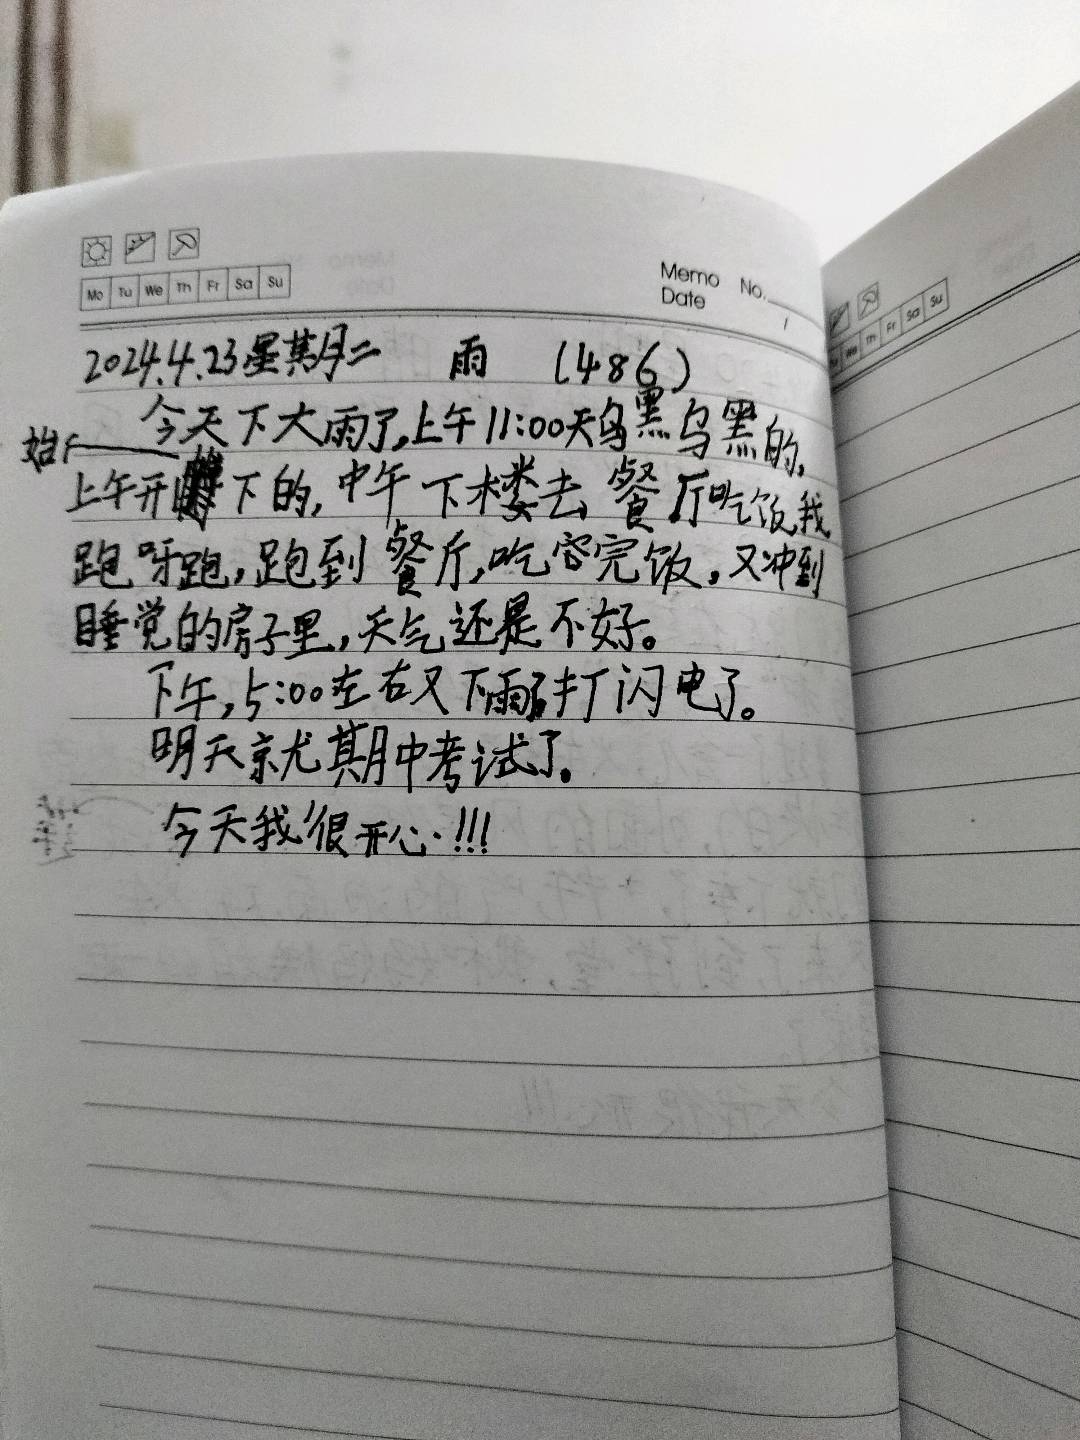 Mo Tu We Th Fr Sa Su
Memo No.
Date
2024.4.23星期二 雨 (486)
今天下大雨了,上午11:00天乌黑乌黑的,
始
上午开下的,中午下楼去餐厅吃饭我
跑呀跑,跑到餐厅,吃容完饭,又冲到
睡觉的房子里,天气还是不好。
下午,5:00左右又下雨了打闪电了。
明天就期中考试了。
今天我很开心!!!
Th Fr Sa Su